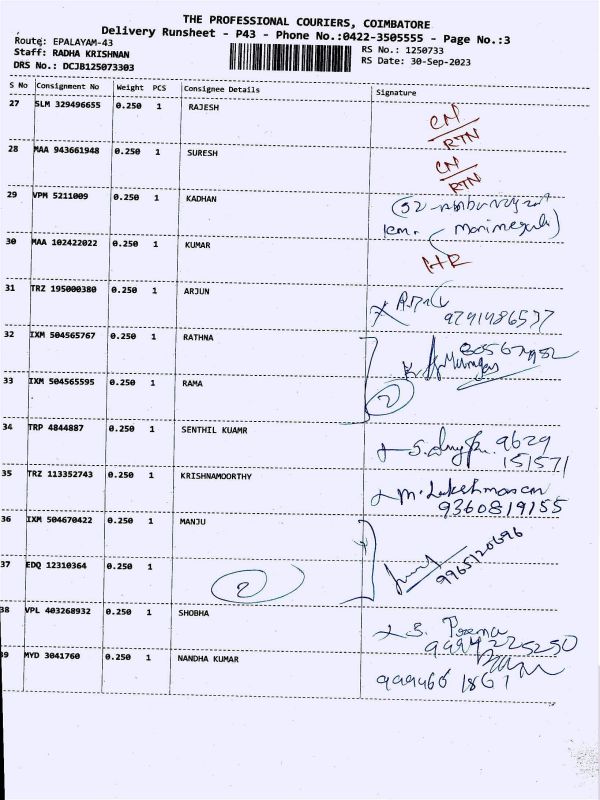 THE PROFESSIONAL COURIERS, COIMBATORE
Delivery Runsheet - P43 - Phone No.:0422-3505555 - Page No.:3
Route: EPALAYAM-43
Staff: RADHA KRISHNAN
DRS No.: DCJB125073303
RS No.: 1250733
RS Date: 30-Sep-2023
S No Consignment No Weight PCS Consignee Details Signature
27 SLM 329496655 0.250 1 RAJESH
CN/RTN
28 MAA 943661948 0.250 1 SURESH
CN/RTN
29 VPM 5211009 0.250 1 KADHAN
30 MAA 102422022 0.250 1 KUMAR
31 TRZ 195000380 0.250 1 ARJUN
32 IXM 504565767 0.250 1 RATHNA
K. Murugan
33 IXM 504565595 0.250 1 RAMA
2
34 TRP 4844887 0.250 1 SENTHIL KUAMR
9629
151571
35 TRZ 113352743 0.250 1 KRISHNAMOORTHY
M. Lakshmanan
9360819155
36 IXM 504670422 0.250 1 MANJU
9965120696
37 EDQ 12310364 0.250 1
2
38 VPL 403268932 0.250 1 SHOBHA
39 MYD 3041760 0.250 1 NANDHA KUMAR